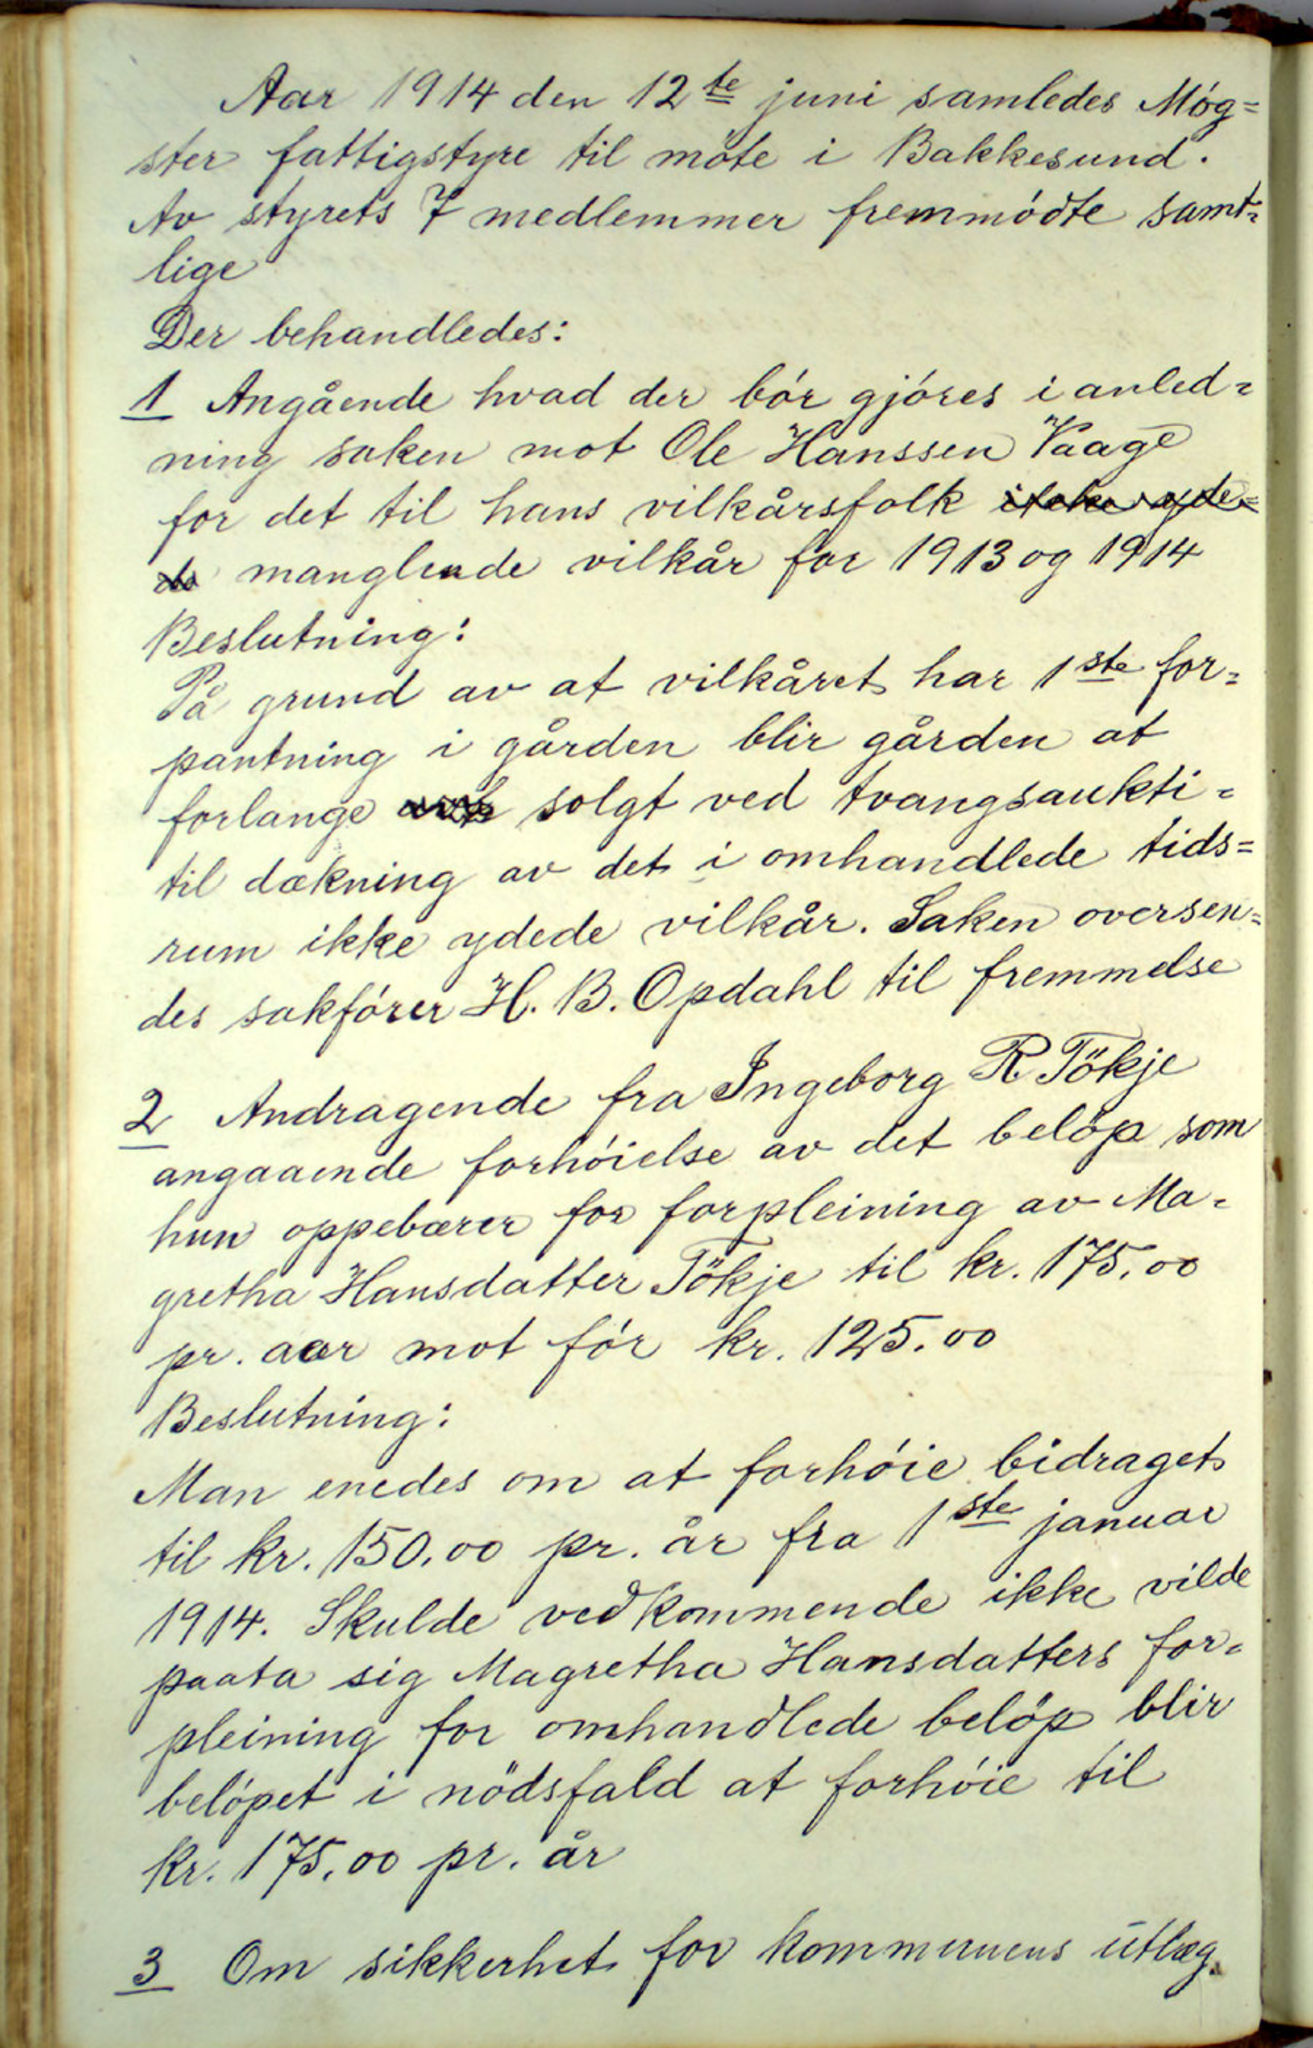 Aar 1914 den 12te juni samledes Møg=
ster fattigstyre til møte i Bakkesund.
Av styrets 7 medlemmer fremmødte samt=
lige
Der behandledes:
1 Angående hvad der bør gjøres i anled=
ning saken mot Ole Hanssen Vaage
for det til hans vilkårsfolk ikke yde=
de manglende vilkår for 1913 og 1914
Beslutning:
På grund av at vilkåret har 1ste for=
pantning i gården blir gården at
forlange solgt ved tvangsaukti=
til dækning av det i omhandlede tids=
rum ikke ydede vilkår. Saken oversen=
des sakfører H. B. Opdahl til fremmelse
2 Andragende fra Ingeborg R Tökje
angaaende forhøielse av det beløp som
hun oppebærer for forpleining av Ma=
gretha Hansdatter Tökje til kr. 175.00
pr. aar mot før kr. 125.00
Beslutning:
Man enedes om at forhøie bidraget
til kr. 150.00 pr. år fra 1ste januar
1914. Skulde vedkommende ikke vilde
paata sig Magretha Hansdatters for=
pleining for omhandlede beløp blir
beløpet i nödsfald at forhøie til
kr. 175.00 pr. år
3 Om sikkerhet for kommunens utlæg